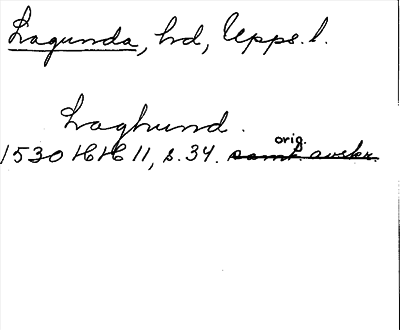 Lagunda, hd, Upps. l.
Laghund.
orig.
1530 HH 11, s. 34. samt. avskr.